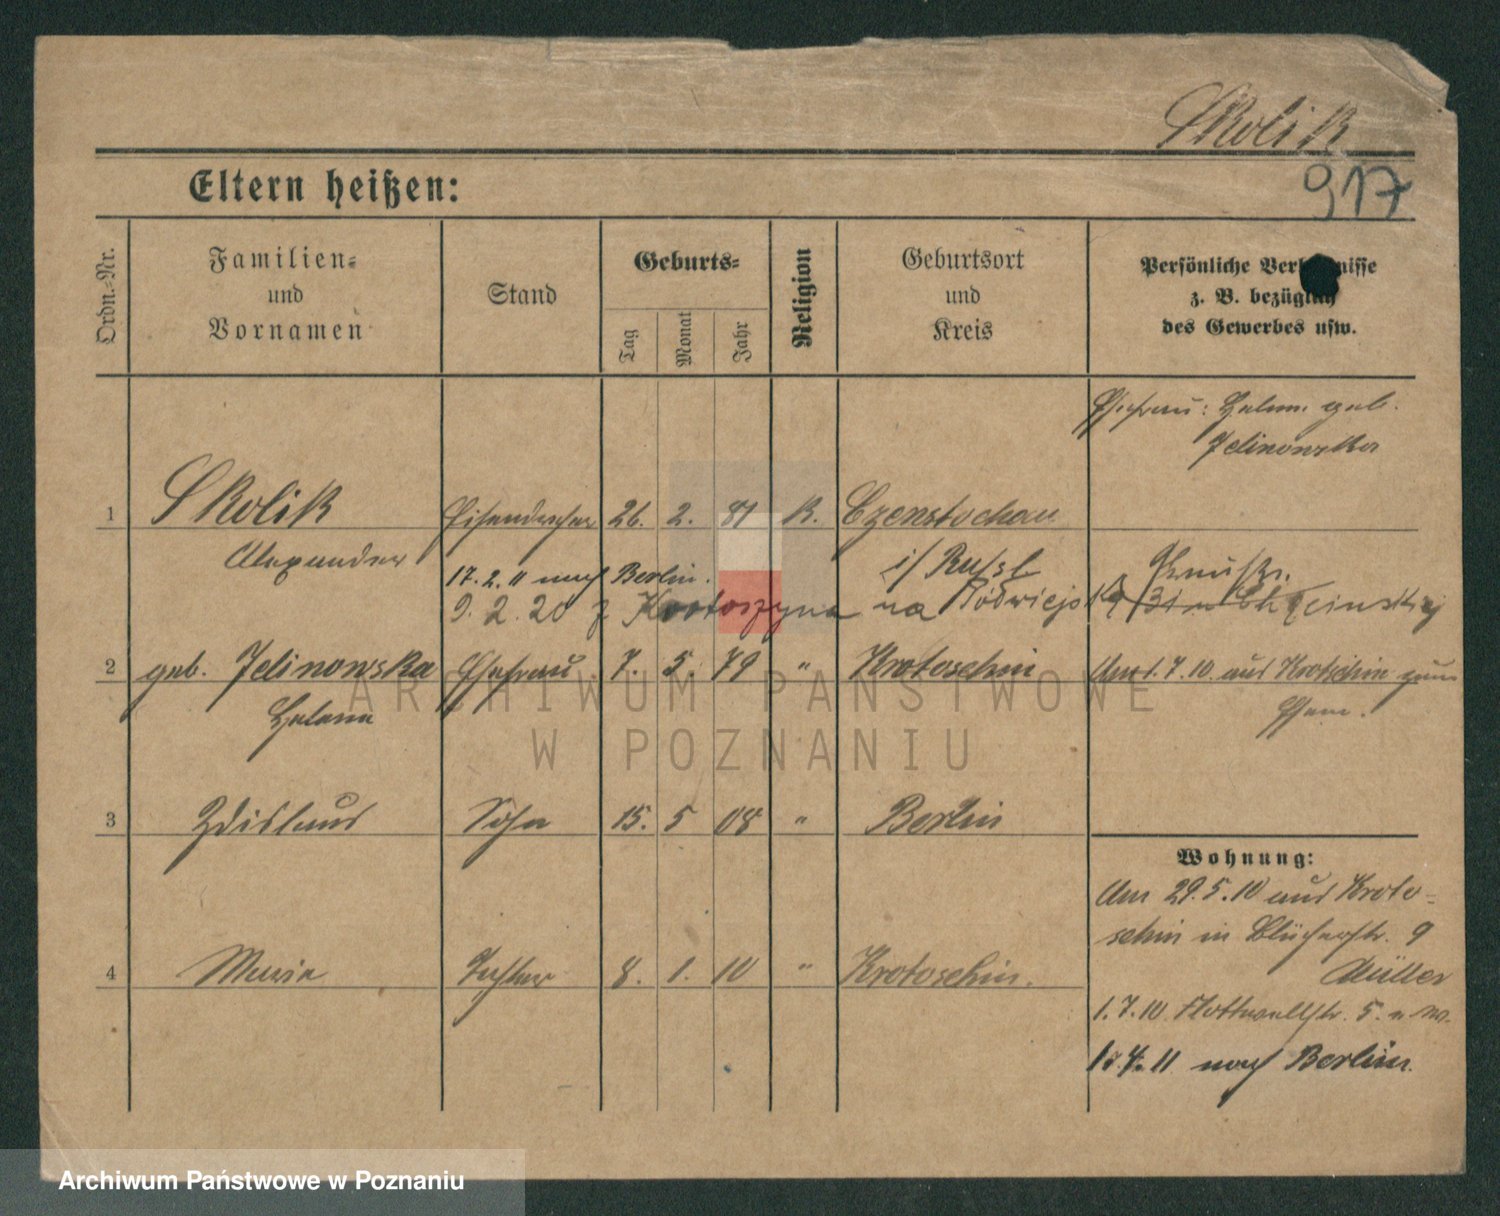 Skolik
Eltern heißen:
917
Ordn.-Nr.
Familien-
und
Vornamen
Stand
Geburts-
Tag
Monat
Jahr
Religion
Geburtsort
und
Kreis
Persönliche Verhältnisse
z. B. bezüglich
des Gewerbes usw.
Ehefrau: Helene geb.
Jelinowska
1 Skolik Eisendreher 26. 2. 81 K. Czenstochau
Alexander i/ Russl
17.2.11 nach Berlin.
9.2.20 z Krotoszyna na Podwiejską
2 geb. Jelinowska Ehefrau 7. 5. 79 " Krotoschin
Am 1.7.10. aus Krotoschin zum
Helene
Ehem.
3 Zdislaus Sohn 15. 5 08 " Berlin
Wohnung:
Am 29.5.10 aus Kroto-
schin in Blücherstr. 9
Müller
4 Marie Tochter 8. 1. 10 " Krotoschin.
1.7.10 Flottwellstr. 5.
nach Berlin.
ARCHIWUM PAŃSTWOWE
W POZNANIU
Archiwum Państwowe w Poznaniu